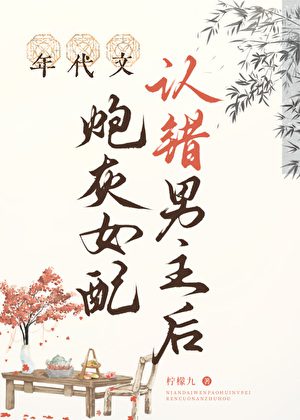 年代文
炮灰女配
认错男主后
柠檬九 著
NIANDAIWENPAOHUINVPEI
RENCUONANZHUHOU